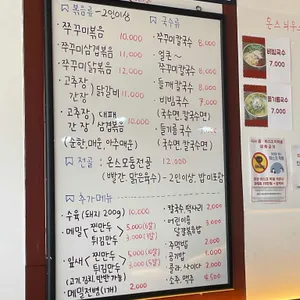 볶음류 - 2인이상
· 쭈꾸미볶음 10,000
· 쭈꾸미삼겹볶음 11,000
· 쭈꾸미닭볶음 12,000
· 고추장
간장 ) 닭갈비 11,000
· 고추장
간장 ) 대패
삼겹볶음 10,000
(순한, 매운, 아주매운)
국수류
· 쭈꾸미칼국수 8,000
· 얼큰~
쭈꾸미칼국수 8,000
· 들깨칼국수 8,000
· 비빔국수 7,000
(국수면, 칼국수면)
· 들기름국수
(국수면, 칼국수면)
전골 : 온스모듬전골 12,000
(빨간, 맑은육수) - 2인이상, 밥 미포함
추가메뉴
· 수육 (돼지 200g) 10,000
· 메밀 찐만두 5,000
튀김만두 3,000
· 잎새 찐만두 5,000
튀김만두 3,000
(고기, 김치, 반반 가능)
· 메밀전병 (1개) 2,000
· 칼국수, 떡사리 2,000
· 어린이용
달걀볶음밥 3,000
· 주먹밥 2,000
· 공기밥 1,000
· 콜라, 사이다 2,000
· 소주, 맥주 4,500
비빔국수
7,000
들기름국수